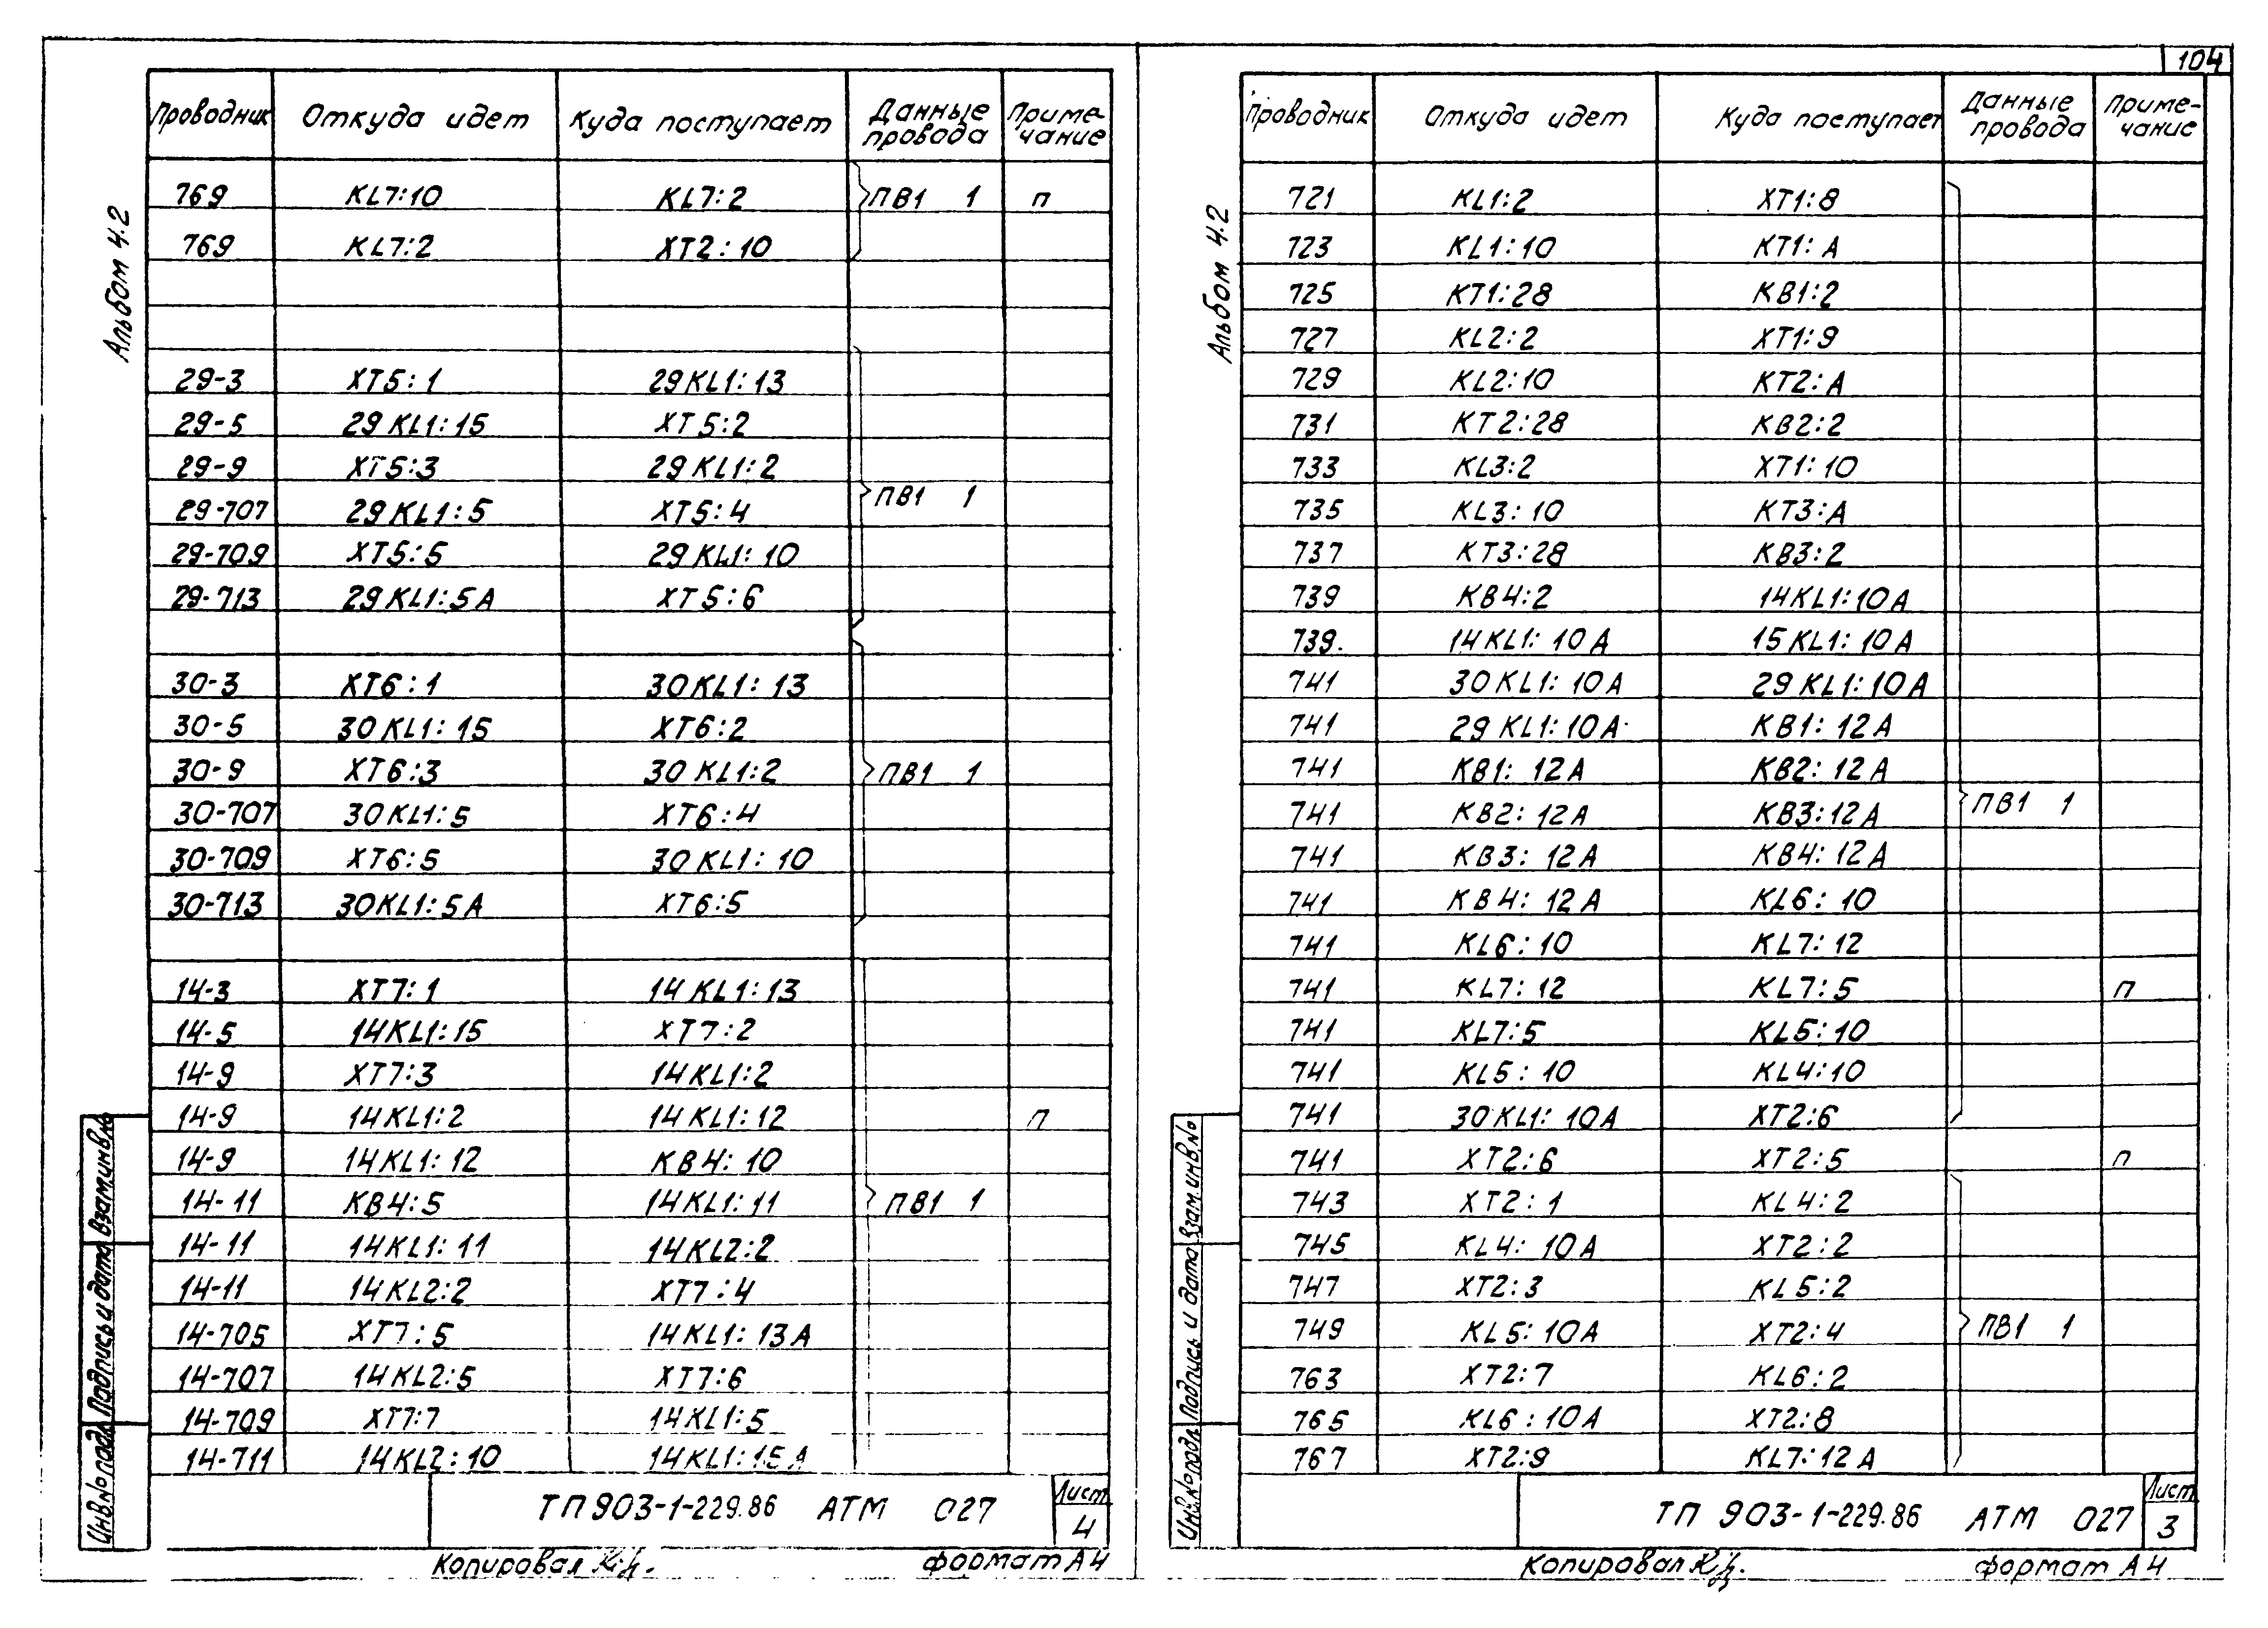 104
Альбом 4.2
Проводник Откуда идет Куда поступает Данные провода Приме-чание
769 KL7:10 KL7:2 ПВ1 1 п
769 KL7:2 XT2:10
29-3 XT5:1 29KL1:13
29-5 29KL1:15 XT5:2
29-9 XT5:3 29KL1:2
ПВ1 1
29-707 29KL1:5 XT5:4
29-709 XT5:5 29KL1:10
29-713 29KL1:5A XT5:6
30-3 XT6:1 30KL1:13
30-5 30KL1:15 XT6:2
30-9 XT6:3 30KL1:2 ПВ1 1
30-707 30KL1:5 XT6:4
30-709 XT6:5 30KL1:10
30-713 30KL1:5A XT6:5
14-3 XT7:1 14KL1:13
14-5 14KL1:15 XT7:2
14-9 XT7:3 14KL1:2
14-9 14KL1:2 14KL1:12 п
14-9 14KL1:12 KB4:10
14-11 KB4:5 14KL1:11 ПВ1 1
14-11 14KL1:11 14KL2:2
14-11 14KL2:2 XT7:4
14-705 XT7:5 14KL1:13A
14-707 14KL2:5 XT7:6
14-709 XT7:7 14KL1:5
14-711 14KL2:10 14KL1:15A
Инв.№подл. Подпись и дата Взам.инв.№
ТП 903-1-229.86 АТМ 027 Лист 4
Копировал формат А4
Альбом 4.2
Проводник Откуда идет Куда поступает Данные провода Приме-чание
721 KL1:2 XT1:8
723 KL1:10 KT1:A
725 KT1:28 KB1:2
727 KL2:2 XT1:9
729 KL2:10 KT2:A
731 KT2:28 KB2:2
733 KL3:2 XT1:10
735 KL3:10 KT3:A
737 KT3:28 KB3:2
739 KB4:2 14KL1:10A
739. 14KL1:10A 15KL1:10A
741 30KL1:10A 29KL1:10A
741 29KL1:10A KB1:12A
741 KB1:12A KB2:12A
741 KB2:12A KB3:12A ПВ1 1
741 KB3:12A KB4:12A
741 KB4:12A KL6:10
741 KL6:10 KL7:12
741 KL7:12 KL7:5 п
741 KL7:5 KL5:10
741 KL5:10 KL4:10
741 30KL1:10A XT2:6
741 XT2:6 XT2:5 п
743 XT2:1 KL4:2
745 KL4:10A XT2:2
747 XT2:3 KL5:2
749 KL5:10A XT2:4 ПВ1 1
763 XT2:7 KL6:2
765 KL6:10A XT2:8
767 XT2:9 KL7:12A
Инв.№подл. Подпись и дата Взам.инв.№
ТП 903-1-229.86 АТМ 027 Лист 3
Копировал формат А4